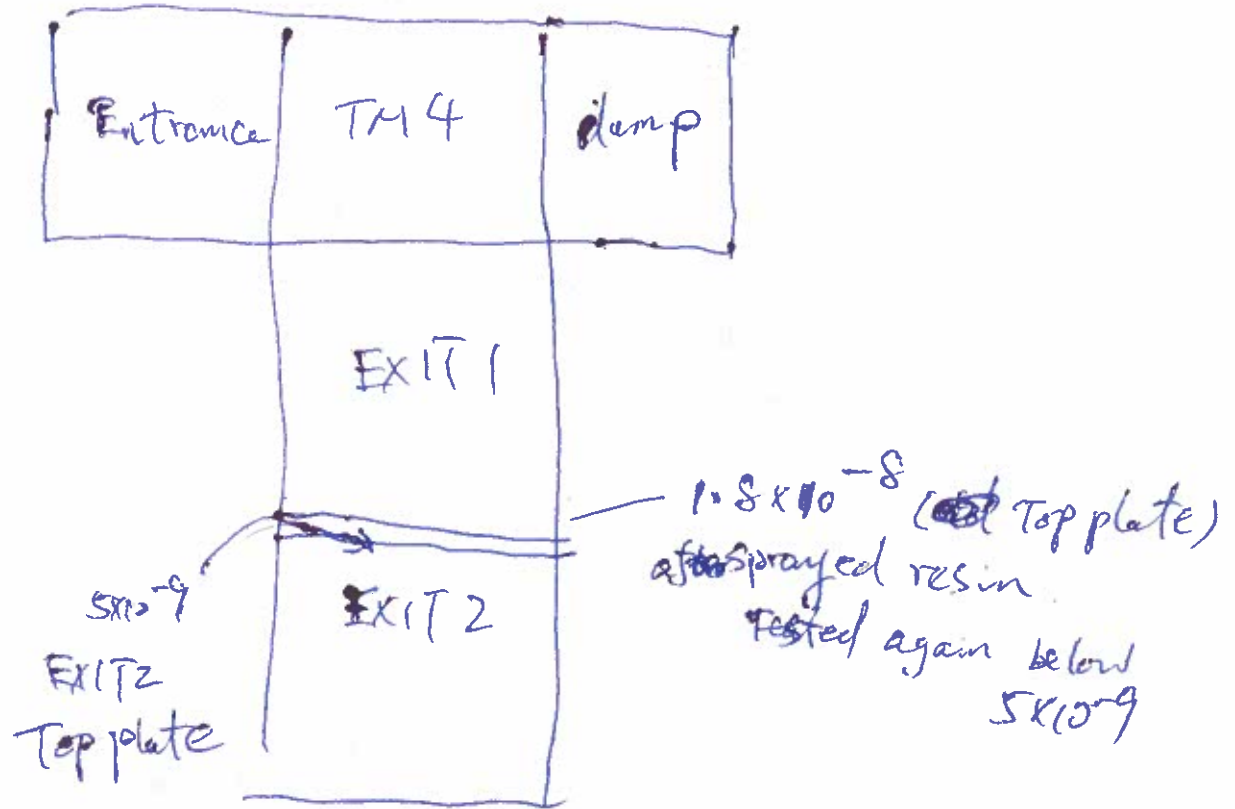 Entrance
TM4
dump
EXIT1
1.8x10⁻⁸ (Top plate)
after sprayed resin
Tested again below
5x10⁻⁹
5x10⁻⁹
EXIT2
Top plate
EXIT2